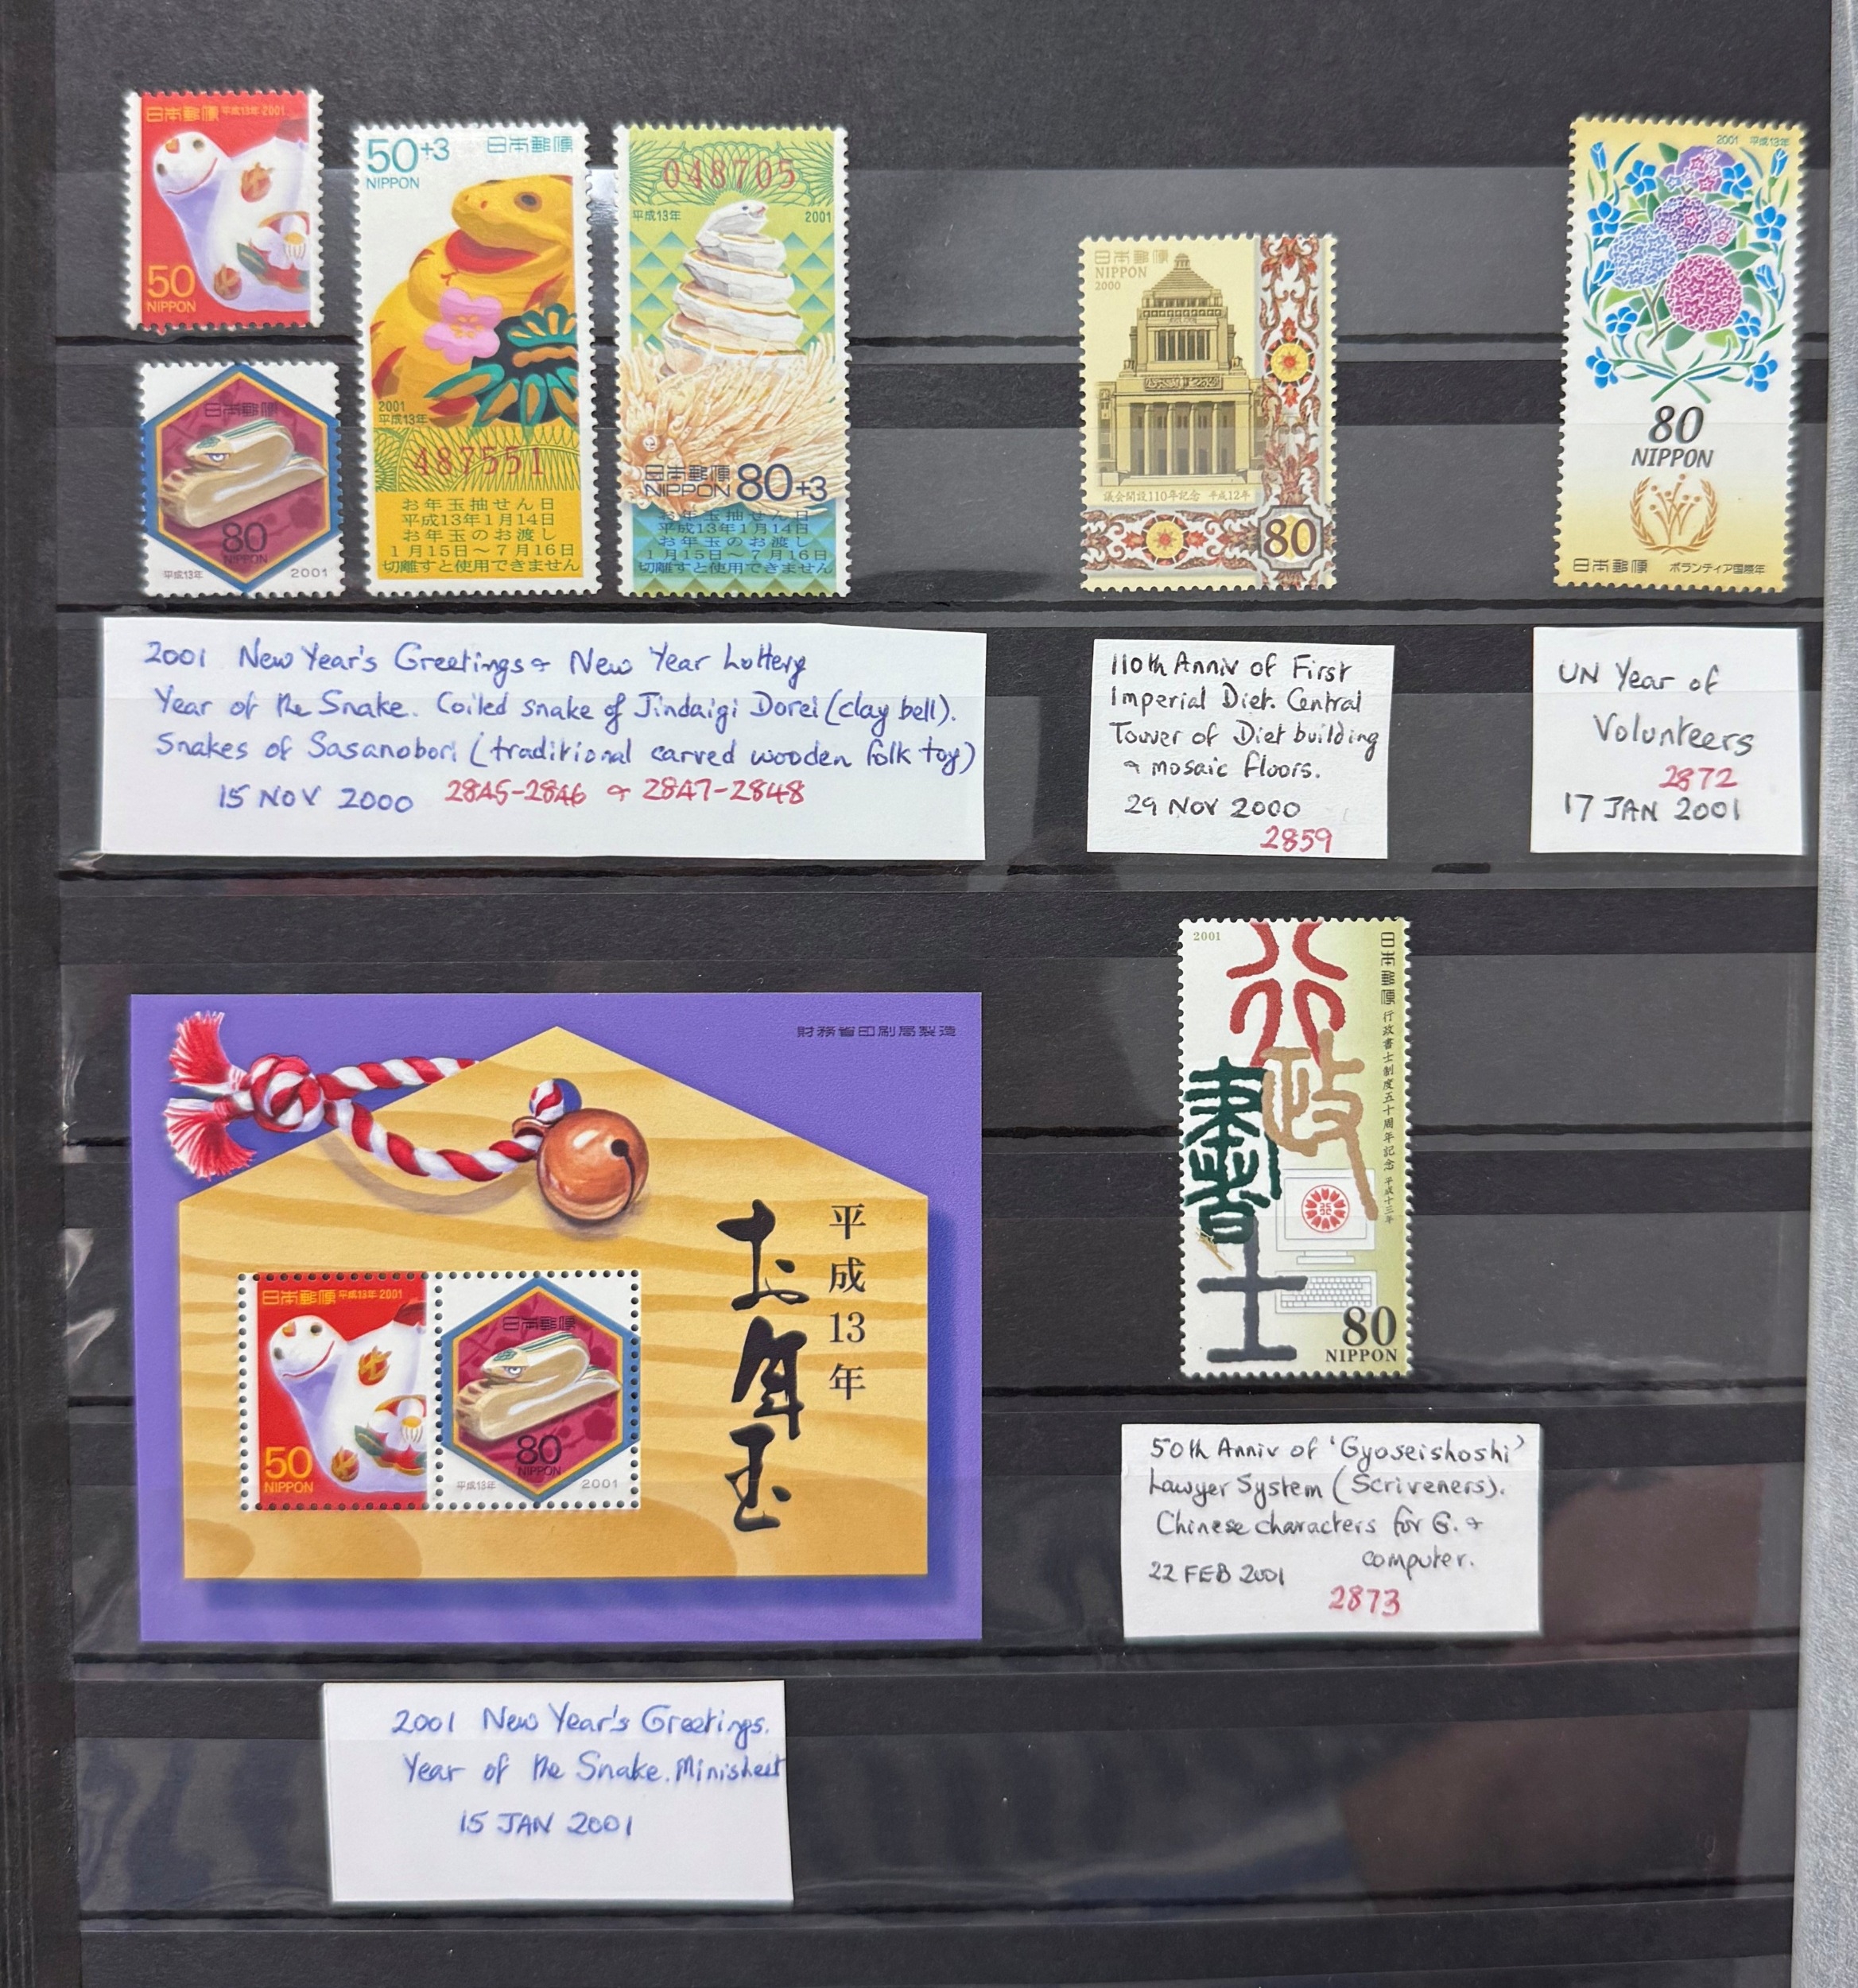 日本郵便 平成13年・2001
50
NIPPON
日本郵便
80
NIPPON
平成13年 2001
50+3 日本郵便
NIPPON
2001
平成13年
487551
お年玉抽せん日
平成13年1月14日
お年玉のお渡し
1月15日〜7月16日
切離すと使用できません
048705
平成13年 2001
日本郵便
NIPPON 80+3
お年玉抽せん日
平成13年1月14日
お年玉のお渡し
1月15日〜7月16日
切離すと使用できません
日本郵便
NIPPON
2000
議会開設110年記念 平成12年
80
2001 平成13年
80
NIPPON
日本郵便 ボランティア国際年
2001 New Year's Greetings & New Year Lottery
Year of the Snake. Coiled snake of Jindaigi Dorei (clay bell).
Snakes of Sasanobori (traditional carved wooden folk toy)
15 NOV 2000 2845-2846 & 2847-2848
110th Anniv of First
Imperial Diet. Central
Tower of Diet building
& mosaic floors.
29 NOV 2000
2859
UN Year of
Volunteers
2872
17 JAN 2001
財務省印刷局製造
平成13年
お年玉
日本郵便 平成13年・2001
50
NIPPON
日本郵便
80
NIPPON
平成13年 2001
2001
日本郵便 行政書士制度五十周年記念 平成十三年
行政書士
80
NIPPON
50th Anniv of 'Gyoseishoshi'
Lawyer System (Scriveners).
Chinese characters for G. &
computer.
22 FEB 2001
2873
2001 New Year's Greetings.
Year of the Snake. Minisheet
15 JAN 2001